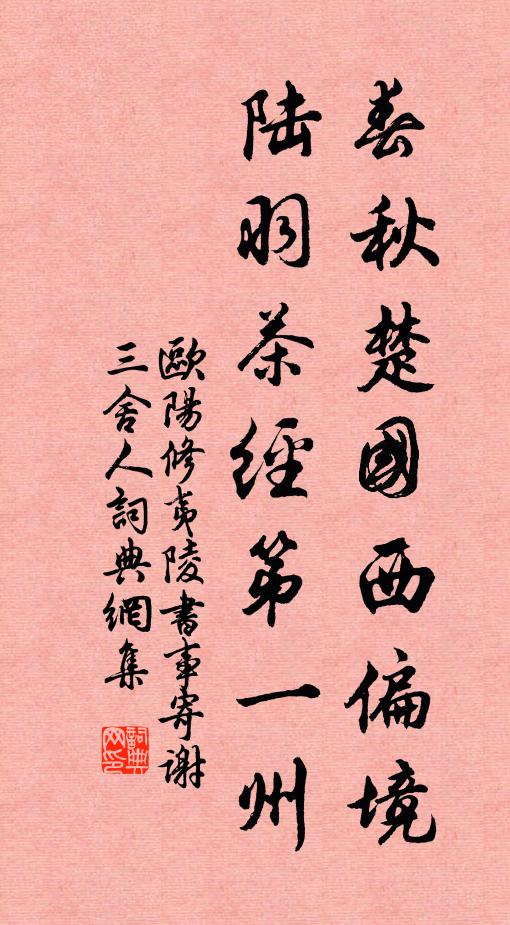 春秋楚國西偏境
陸羽茶經第一州
歐陽修夷陵書事寄謝
三舍人詞典網集
詞典
网印